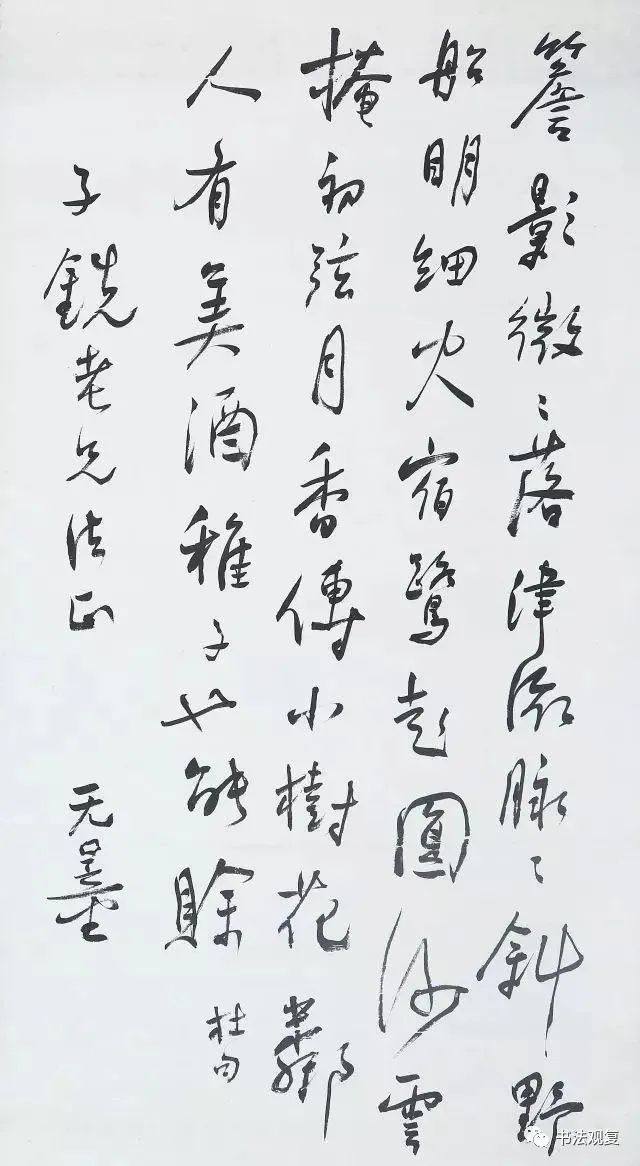 簷影微〻落津流脉〻斜野
船明細火宿鷺起圓沙雲
掩初弦月香傳小樹花鄰
人有美酒稚子也能賒
杜句
子銑老兄法正
无量
书法观复